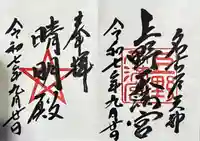 名古屋大都
上野天満宮
令和七年九月廿日
奉拝
晴明殿
令和七年九月廿日